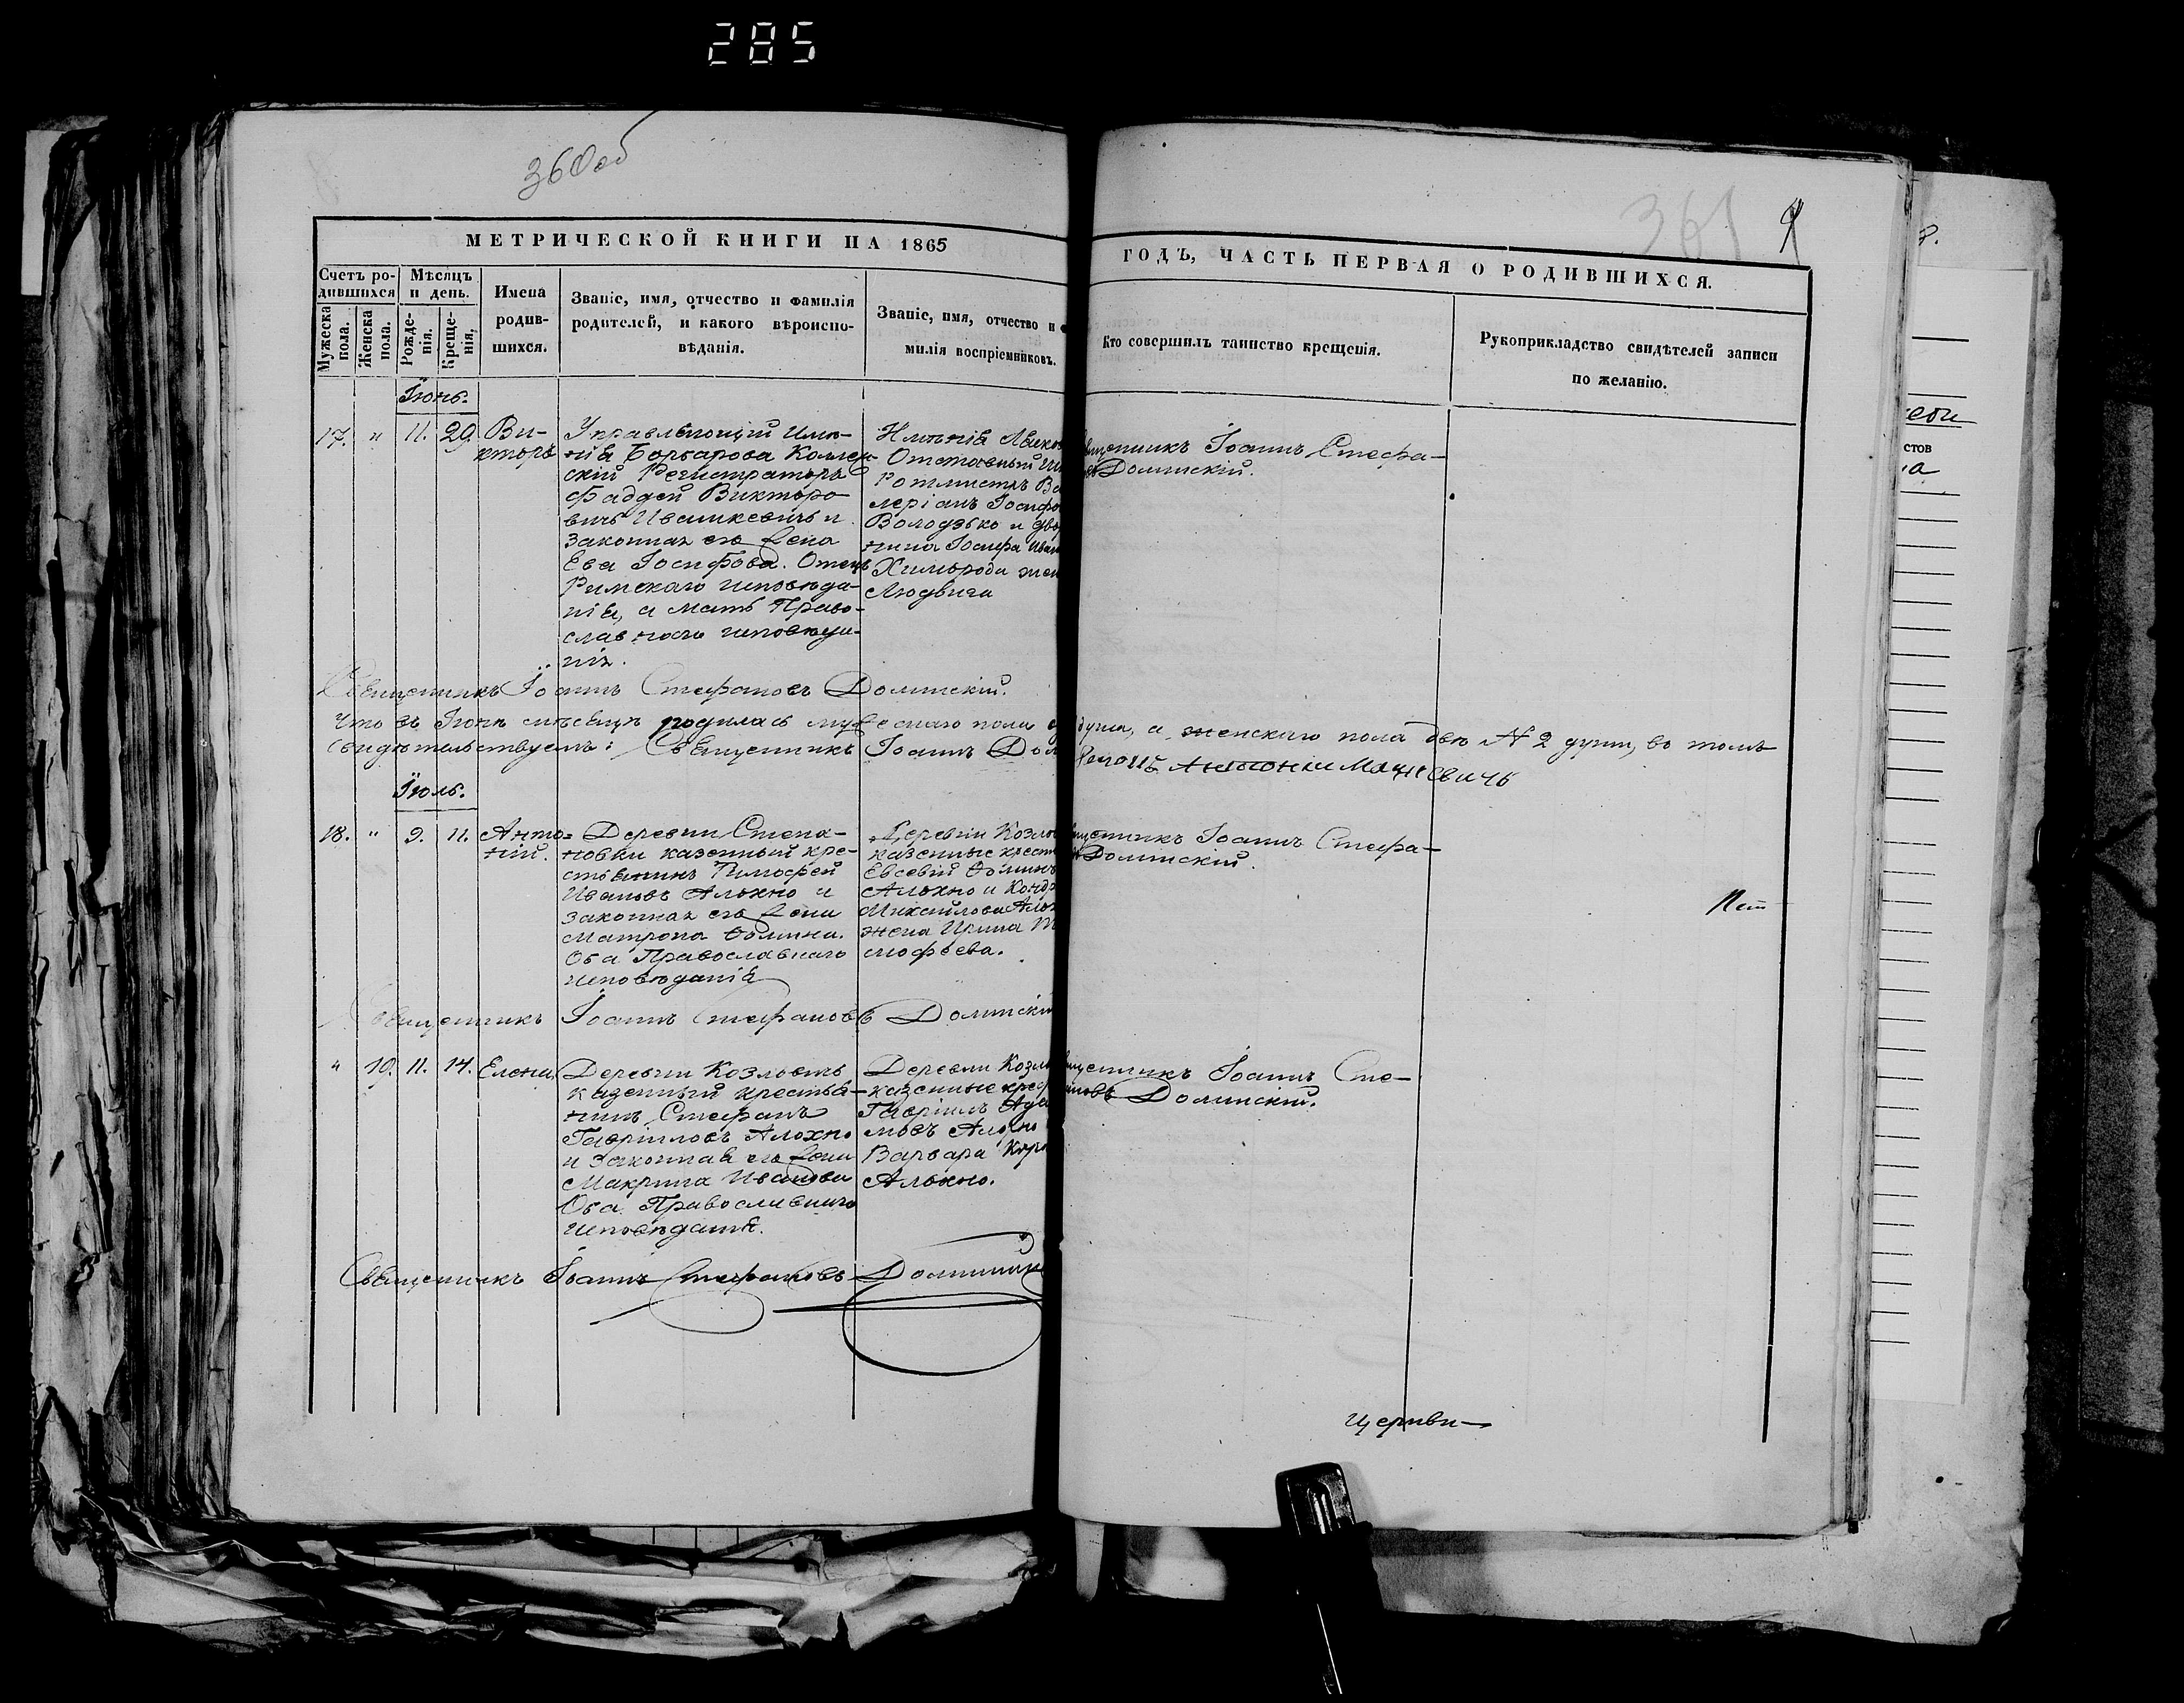 285
360об
361 9
МЕТРИЧЕСКОЙ КНИГИ НА 1865
ГОДЪ, ЧАСТЬ ПЕРВАЯ О РОДИВШИХСЯ.
Счетъ ро-
дившихся
Мужеска пола.
Женска пола.
Мѣсяцъ
и день.
Рожде-
нія.
Креще-
нія.
Имена
родив-
шихся.
Званіе, имя, отчество и фамилія
родителей, и какого вѣроиспо-
вѣданія.
Званіе, имя, отчество и ф
милія воспріемниковъ.
Кто совершилъ таинство крещенія.
Рукоприкладство свидѣтелей записи
по желанію.
Іюнь.
17. " 11. 29. Ви-
кторъ
Управляющій Имѣ-
нія Борбарова Коллеж-
скій Регистраторъ
Фаддей Викторо-
вичъ Ивашкевичъ и
законная его жена
Ева Іосифова. Отецъ
Римскаго исповѣда-
нія, а мать Право-
славнаго исповѣда-
нія.
Имѣнія
Отставный
Ротмистръ Ва
леріанъ Іосифо
Володзько и дво
нина Іосифа Иван
жен
Людвига
щенникъ Іоаннъ Стефа-
Долинскій.
Священникъ Іоаннъ Стефановъ Долинскій.
Что въ Іюнѣ мѣсяцѣ родилась мужескаго пола душа, а женскаго пола двѣ № 2 души, въ томъ
свидѣтельствуемъ: Священникъ Іоаннъ Дол
Іюль.
18. " 9. 11. Анто-
ній.
Деревни Степа-
новки казенный кре-
стьянинъ Тимофей
Ивановъ Алохно и
законная его жена
Матрона Ѳомина.
Оба Православнаго
исповѣданія
Деревни Козло
казенные крест
Евсевій Ѳоминъ
Алохно и Конд
Михайлова Алох
жена Ирина Ти
мофеева.
щенникъ Іоаннъ Стефа-
Долинскій.
Священникъ Іоаннъ Стефановъ Долинскій
" 19. 11. 14. Елена
Деревни Козловичъ
казенный крестья-
нинъ Стефанъ
Гавріиловъ Алохно
и законная его жена
Макрина Иванова
Оба Православнаго
исповѣданія.
Деревни Козл
казенные крес
Гавріилъ Ада
мовъ Алохно
Варвара
Алохно.
щенникъ Іоаннъ Сте-
новъ Долинскій.
Священникъ Іоаннъ Стефановъ Долинскій
церкви
стов